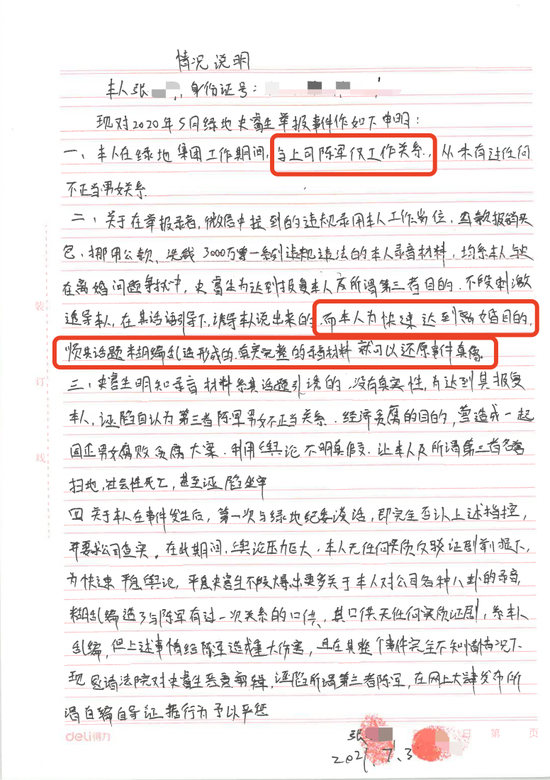 情况说明
本人张 ，身份证号：
现对2020年5月绿地史富生举报事件作如下申明：
一、本人在绿地集团工作期间，与上司陈军仅工作关系，从未有过任何
不正当男女关系
二、关于在举报录音，微信中提到的违规录用本人工作岗位，虚报
包，挪用公款， 3000万 一系列违规违法的本人录音材料，均系本人与史
在离婚问题争执中，史富生为达到报复本人及所谓第三者目的，不段刺激
诱导本人，在其话语引导下，诱导本人说出来的，而本人为快速达到离婚目的，
顺其话题胡编乱造形成的，有完整的录音材料就可以还原事件真像
三、史富生明知录音材料系其话题引诱的，没有真实性，为达到其报复
本人，诬陷自认为第三者陈军男女不正当关系，经济贪腐的目的，营造成一起
因不正男女腐败贪腐大案，利用舆论不明真假，让本人及所谓第三者名誉
扫地，社会性死亡，甚至诬陷坐牢
四、关于本人在事件发生后，第一次与绿地纪委谈话，即完全否认上述指控，
并要求公司查实，在此期间，舆论压力巨大，本人无任何实质反驳证剧前提下，
为快速平息舆论，平息史富生不段爆出更多关于本人对公司各种八卦的录音，
胡乱编造了与陈军有过一次关系的口供，其口供无任何实质证剧，系本人
乱编，但上述事情给陈军造成重大伤害，且在其整个事件完全不知情情况下
现恳请法院对史富生恶意剪辑，诬陷所谓第三者陈军，在网上大肆发布所
谓自编自导证据行为予以平怨
张
2021.7.3
deli得力
第 页
装
订
线